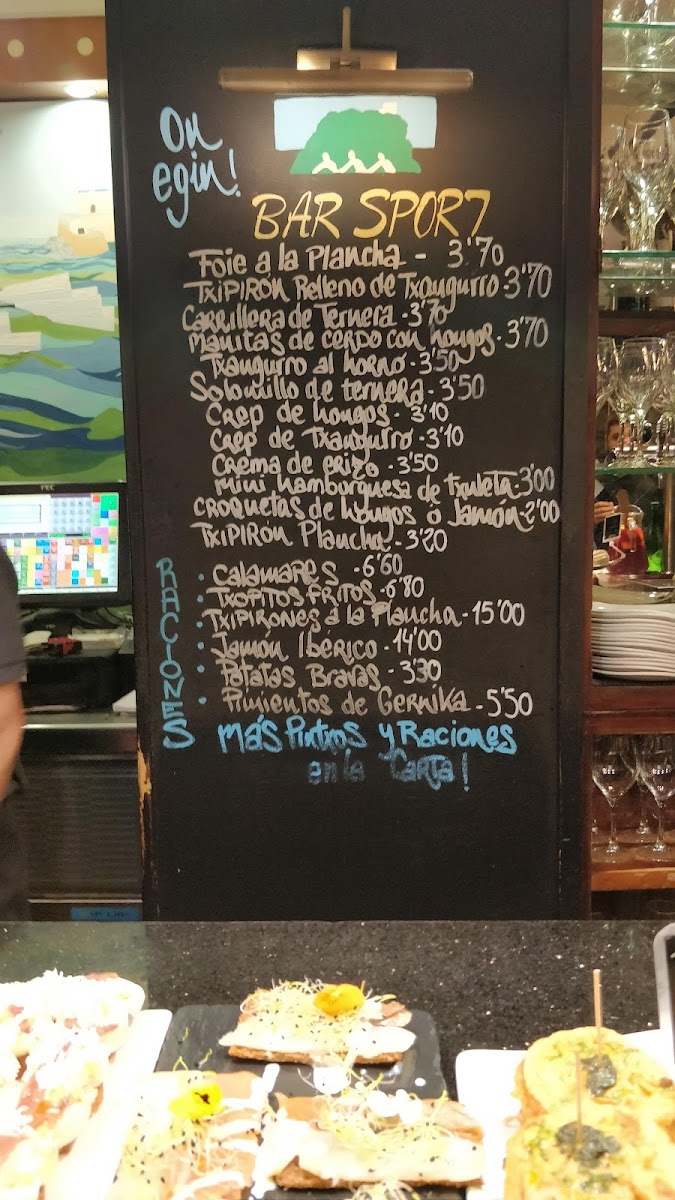 On
egin!
BAR SPORT
Foie a la Plancha - 3'70
TxiPiRÓN Relleno de Txangurro 3'70
Carrillera de Ternera - 3'70
Manitas de CERDO con hongos - 3'70
Txangurro al horno - 3'50
Solomillo de ternera - 3'50
Crep de hongos - 3'10
Crep de Txangurro - 3'10
Crema de erizo - 3'50
Mini hamburguesa de Txuleta - 3'00
CROQUETAS de hongos ó Jamón - 2'00
TXiPiRÓN Plancha - 3'20
RACIONES
• Calamares - 6'60
• Txopitos fritos - 6'80
• Txipirones a la Plancha - 15'00
• Jamón Ibérico - 14'00
• Patatas Bravas - 3'30
• Pimientos de Gernika - 5'50
Más Pintxos y Raciones
en la Carta!